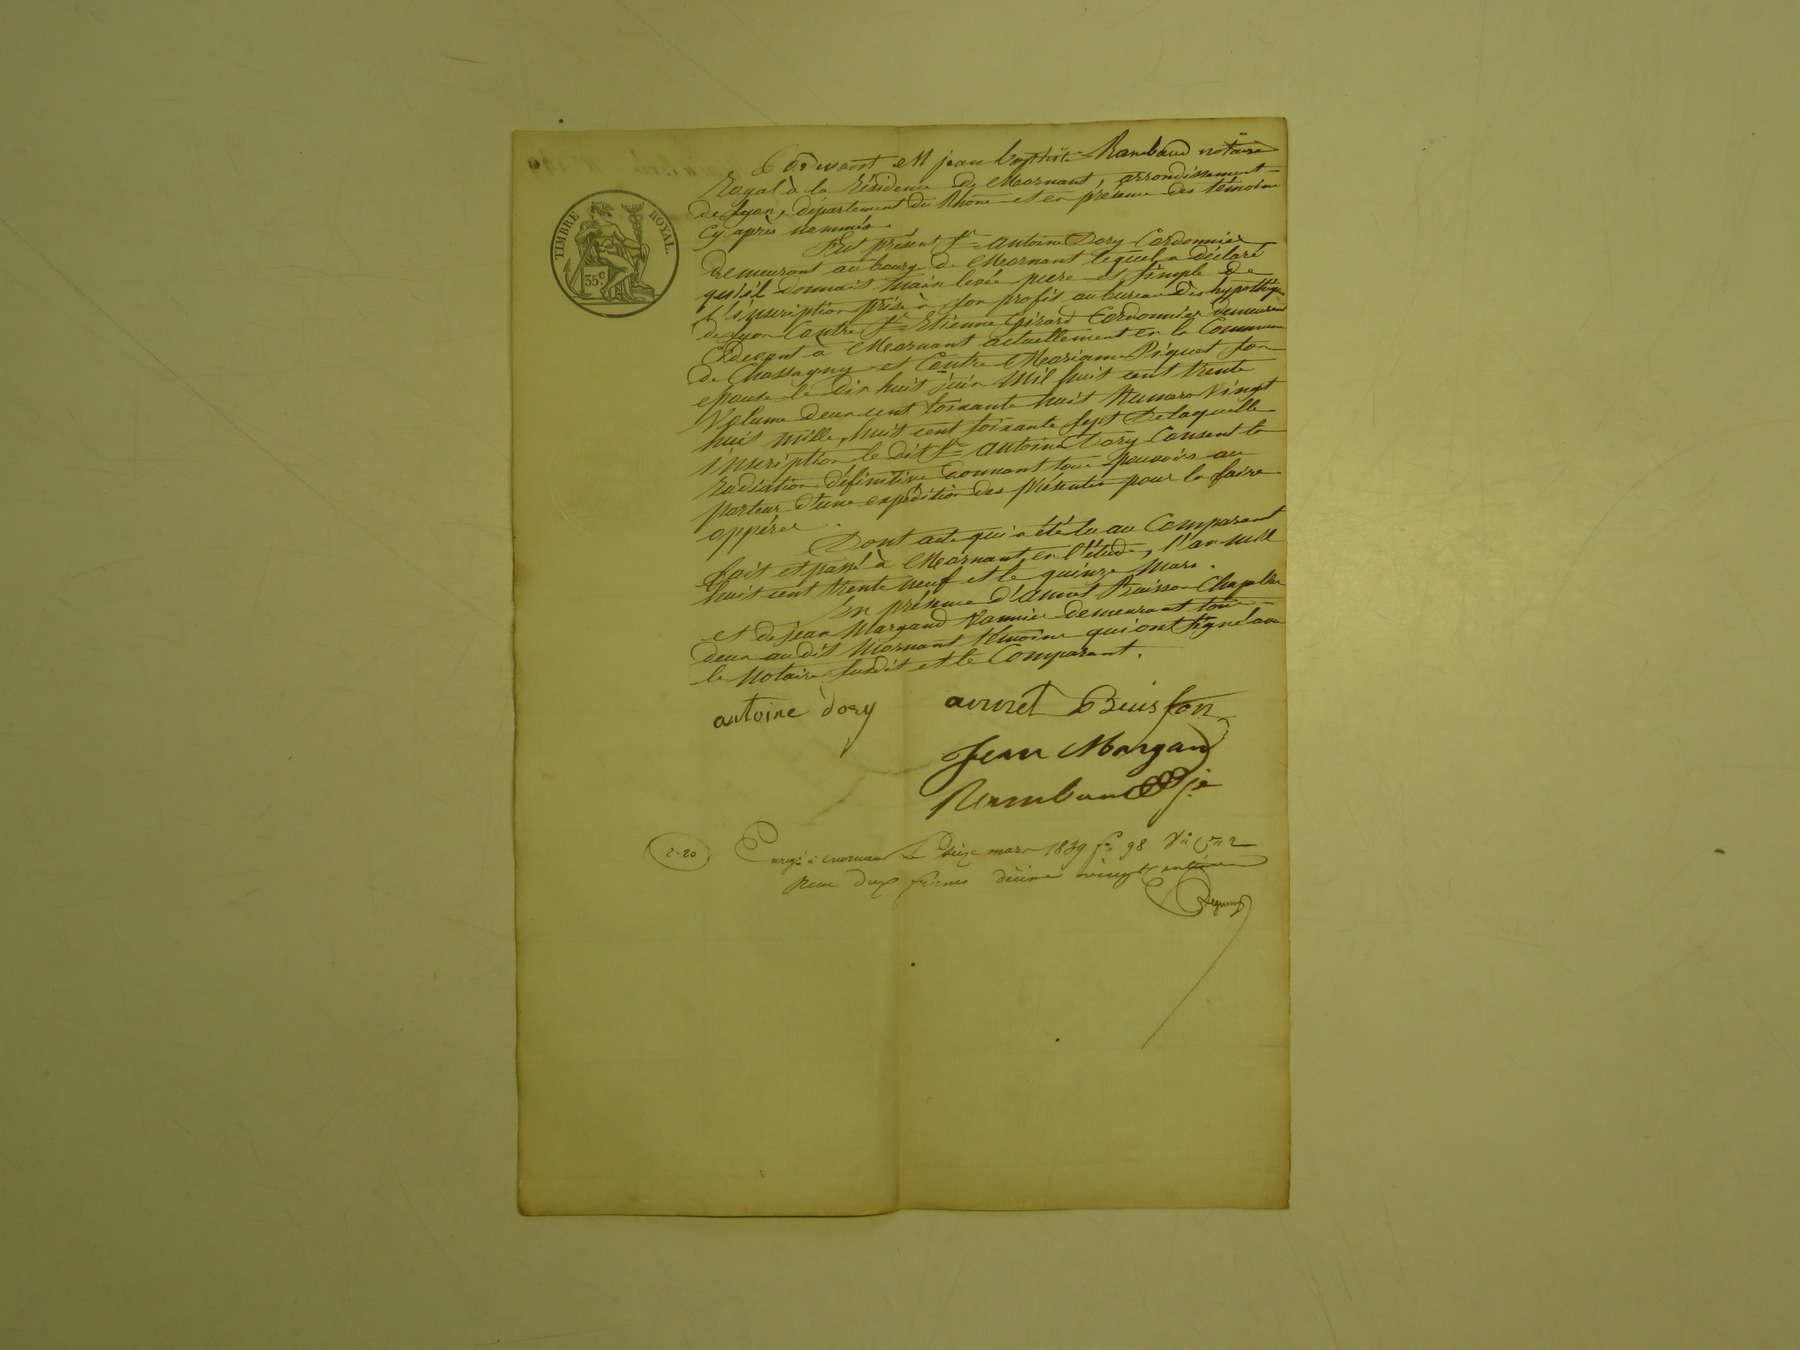 TIMBRE ROYAL
35 c.
Pardevant Me jean Baptiste Rambaud notaire
Royal à la résidence de Mornant, arrondissement
de Lyon, département du Rhône et en présence des témoins
cy après nommés
Est présent Sr antoine Dory Cordonnier
demeurant au bourg de Mornant lequel a déclaré
qu'il donnait main levée pure et simple de
l'inscription prise à son profit au bureau des hypothèques
de Lyon Contre Sr Etienne Girard Cordonnier demeurant
cidevant à Mornant actuellement en la Commune
de Chassagny et Contre Mariane Piquet son
epouse le dix huit juin Mil huit cent trente
Volume deux cent soixante huit Numero vingt
huit mille, huit cent soixante sept De laquelle
inscription le dit Sr antoine Dory Consent la
radiation définitive donnant tous pouvoirs au
porteur d'une expédition des présentes pour la faire
oppérer.
Dont acte qui a été lu au Comparant
fait et passé à Mornant en l'étude, l'an mil
huit cent trente neuf et le quinze Mars.
En présence d'annet Buisson Chapelier
et de Jean Margand Vannier demeurant tous
deux au dit Mornant témoins qui ont signé avec
le Notaire susdit et le Comparant.
antoine dory annet Buisson
Jean Margand
Rambaud
2-20
Enregé à mornant le seize mars 1839 fo 98
Reçu deux francs décime vingt centimes